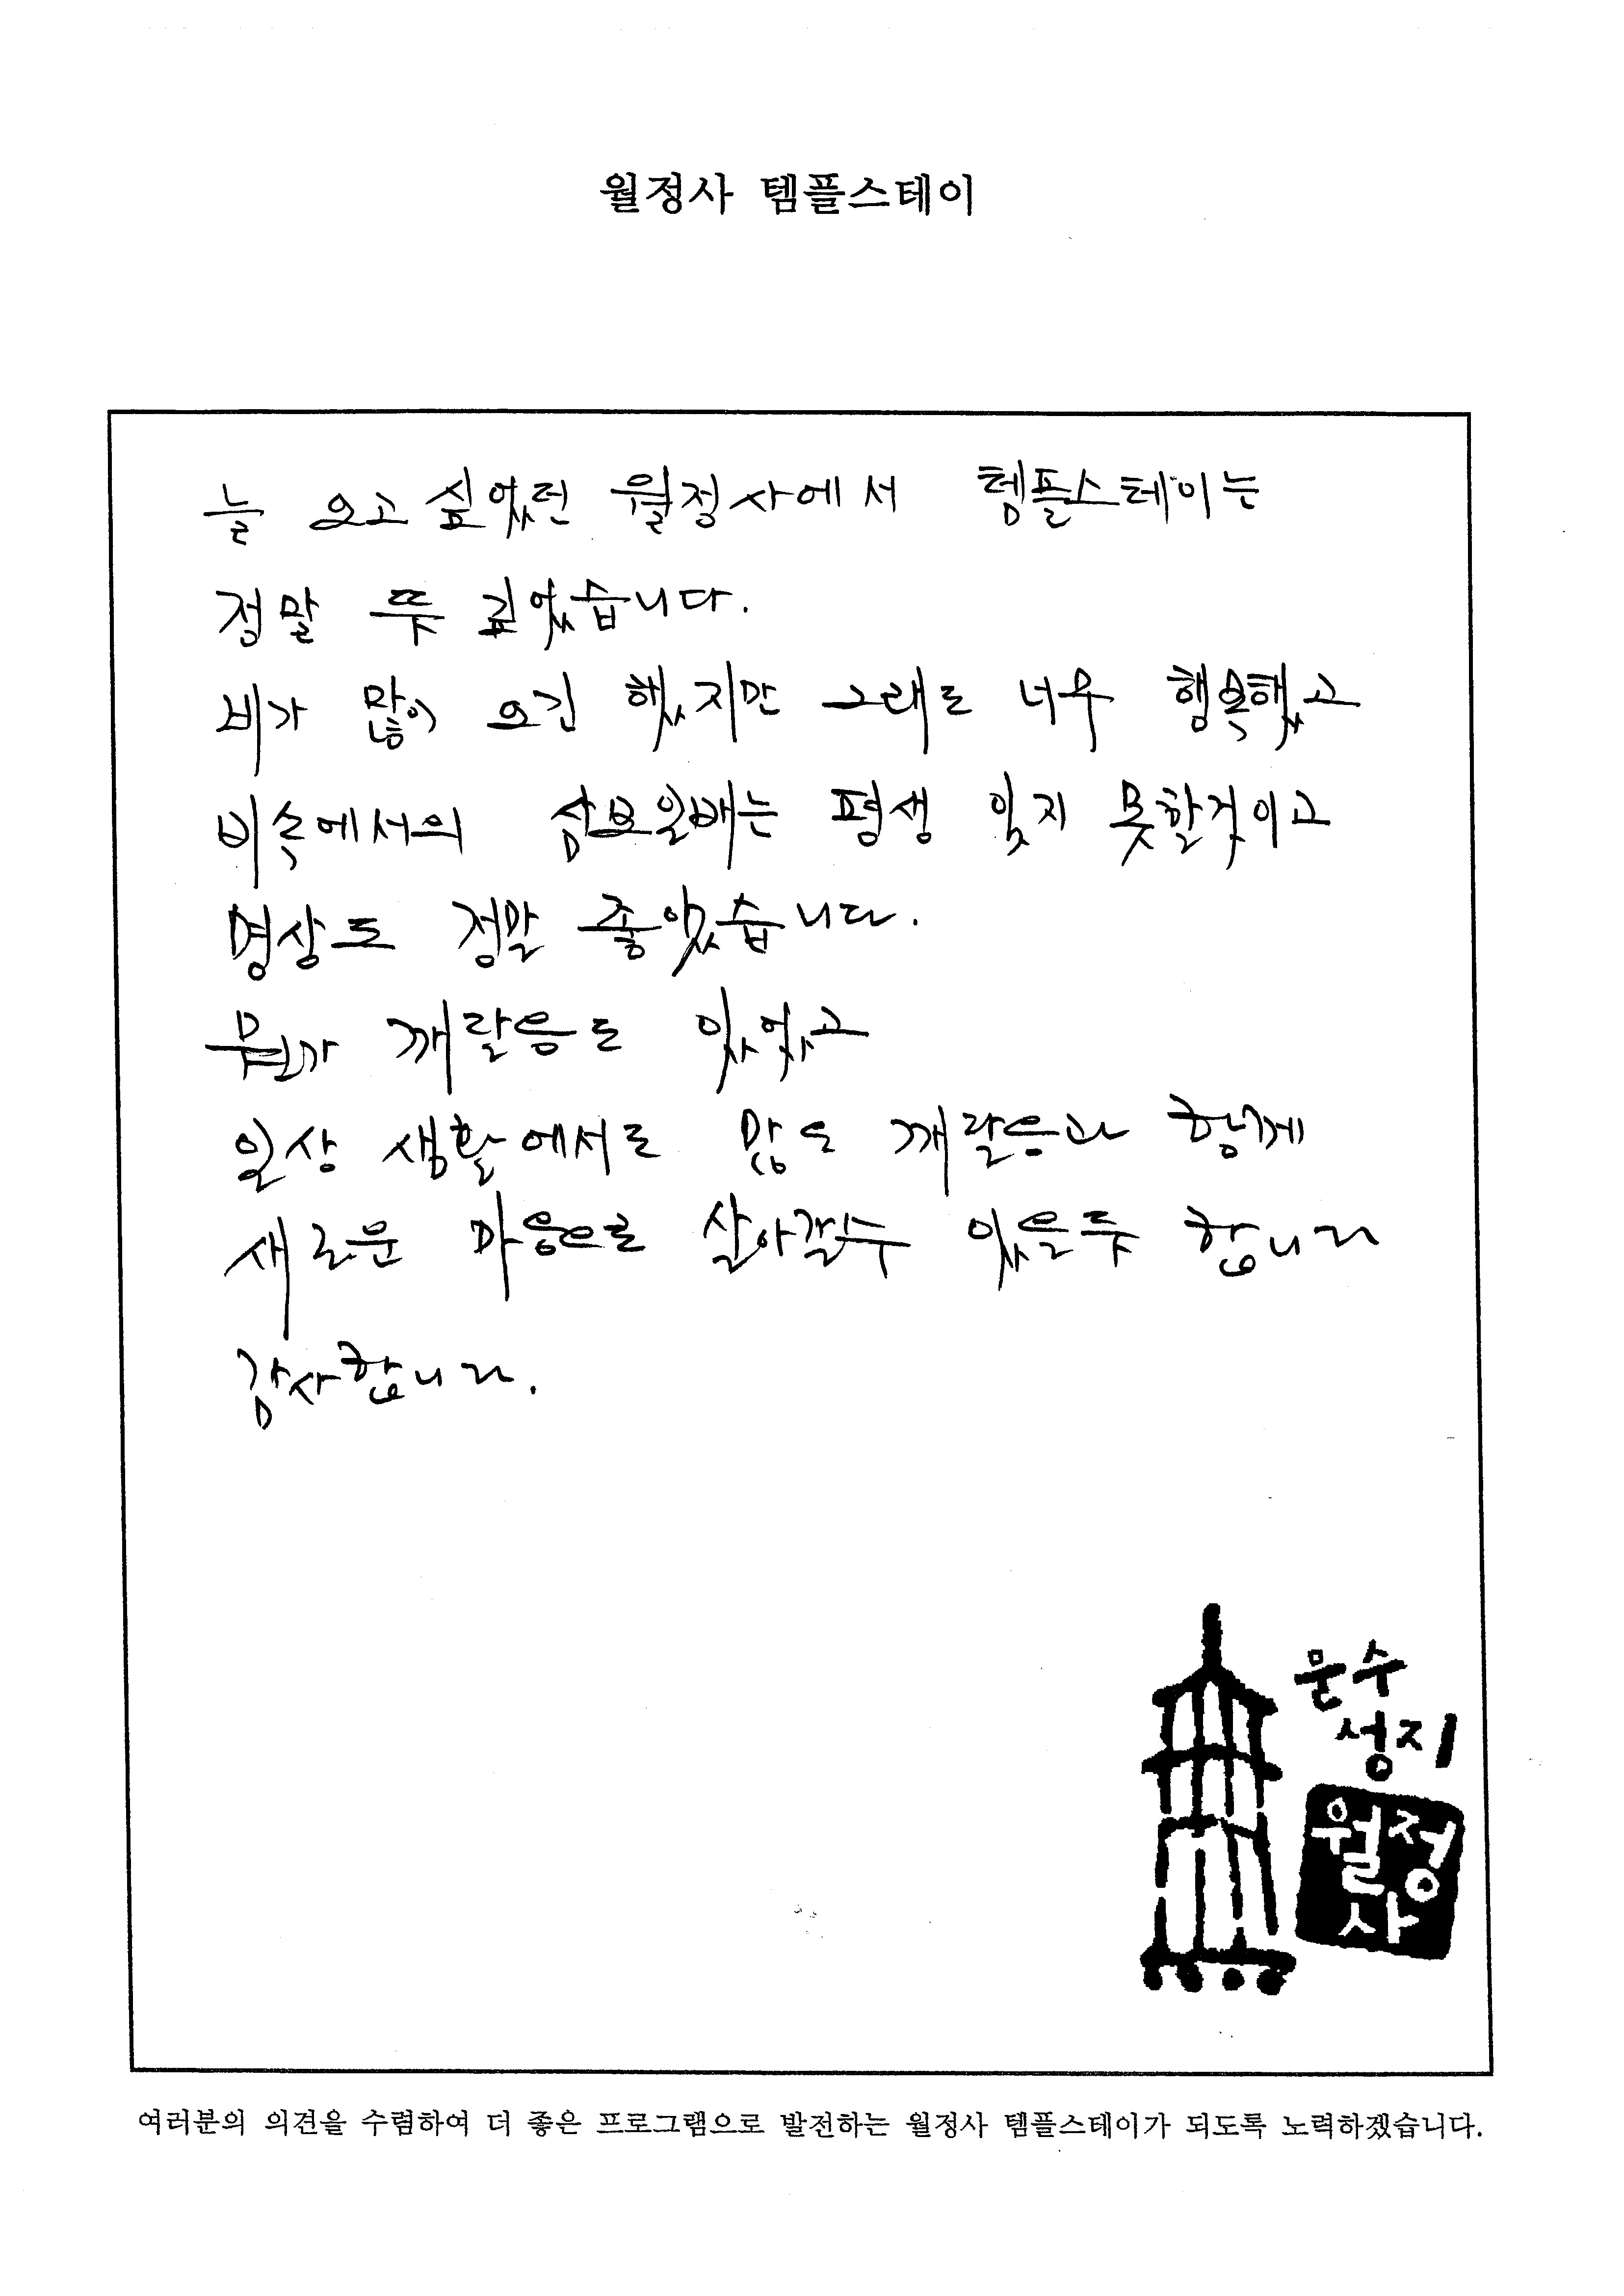 월정사 템플스테이
늘 오고 싶었던 월정사에서 템플스테이는
정말 뜻 깊었습니다.
비가 많이 오긴 했지만 그래도 너무 행복했고
비속에서의 삼보일배는 평생 잊지 못할것이고
명상도 정말 좋았습니다.
뭔가 깨달음도 있었고
일상 생활에서도 많은 깨달음과 함께
새로운 마음으로 살아갈수 있을듯 합니다
감사합니다.
문수
성지
월정
사
여러분의 의견을 수렴하여 더 좋은 프로그램으로 발전하는 월정사 템플스테이가 되도록 노력하겠습니다.